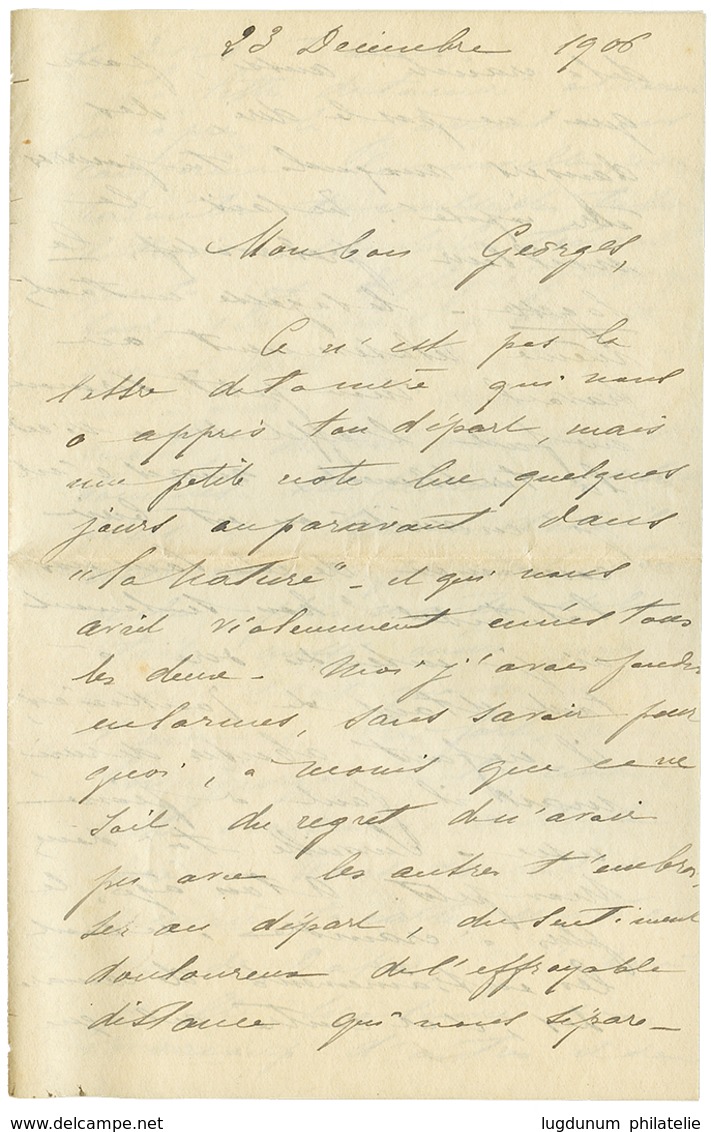 23 Décembre 1906
Mon bon Georges,
Ce n'est pas la
lettre de ta mère qui nous
a appris ton départ, mais
une petite note lue quelques
jours auparavant dans
"la Nature" - et qui nous
avait violemment émus tous
les deux - Moi j'avais fondu
en larmes, sans savoir pour
quoi, à moins que ce ne
soit du regret de n'avoir
pas avec les autres t'embras
ser au départ, du sentiment
douloureux de l'effroyable
distance qui nous sépare -
lugdunum philatelie